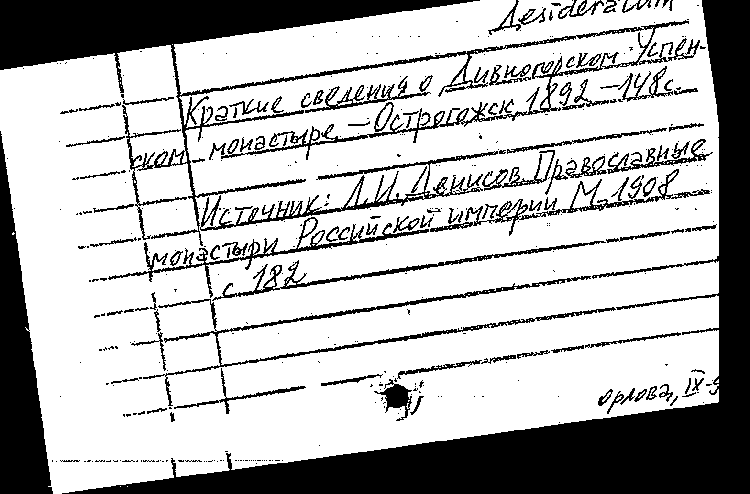 Desideratum
Краткие сведения о Дивногорском Успен-
ском монастыре. – Острогожск, 1892 – 148 с.
Источник: Л.И. Денисов. Православные
монастыри Российской империи М., 1908
с 182
орлова, IX-